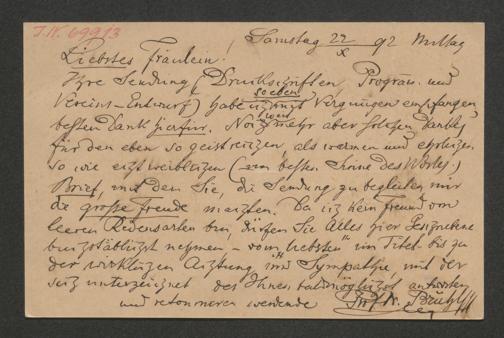 I.N. 69913
Samstag 22/X 92 Mittag
Liebstes Fräulein!
Ihre Sendung (Druckschriften, Programm und
Vereins-Entwurf) habe ich soeben mit Vergnügen empfangen,
besten Dank hierfür. Noch weit mehr aber Dank
für den eben so geistreichen, als warmen und ehrlichen,
so wie echt weiblichen (im besten Sinne des Wortes)
Brief, mit dem Sie, die Sendung zu begleiten mir
die große Freude machten. Da ich kein Freund von
leeren Redensarten bin, dürfen Sie Alles hier
buchstäblich nehmen – vom "liebsten" im Titel bis zu
der wirklichen Achtung und Sympathie, mit der
sich unterzeichnet der Ihnen baldmöglichst antworten
und retournieren werdende